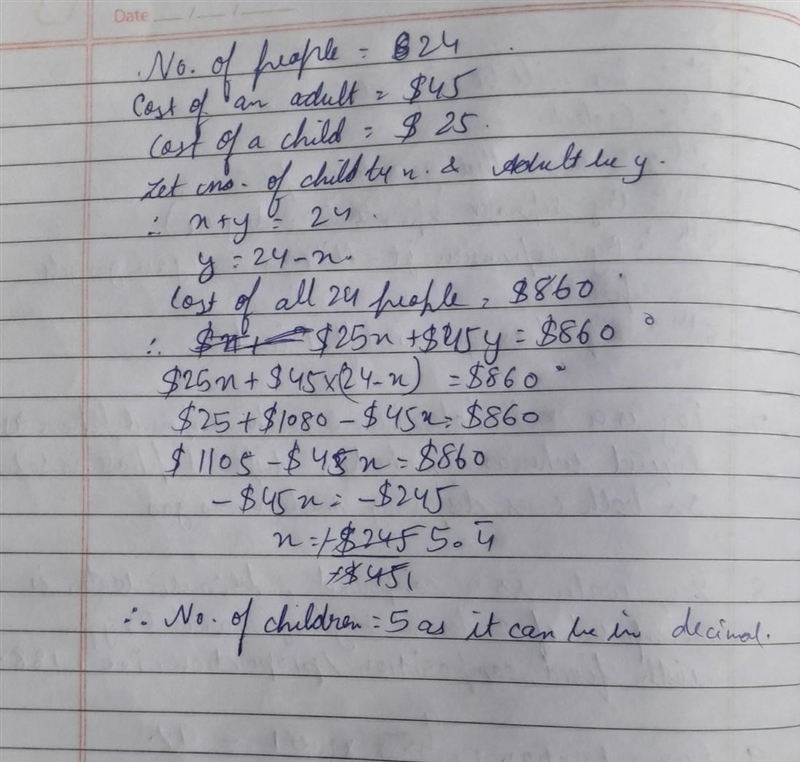 Date
No. of people = 24
Cost of an adult = $45
Cost of a child = $ 25.
Let no. of child be x. & Adult be y.
∴ x+y = 24.
y = 24-x.
Cost of all 24 people = $860
∴ $25x + $45y = $860
$25x + $45×(24-x) = $860
$25 + $1080 - $45x = $860
$1105 - $45x = $860
- $45x = - $245
x = -$245 5.4̄
-$45
∴ No. of children = 5 as it can be in decimal.